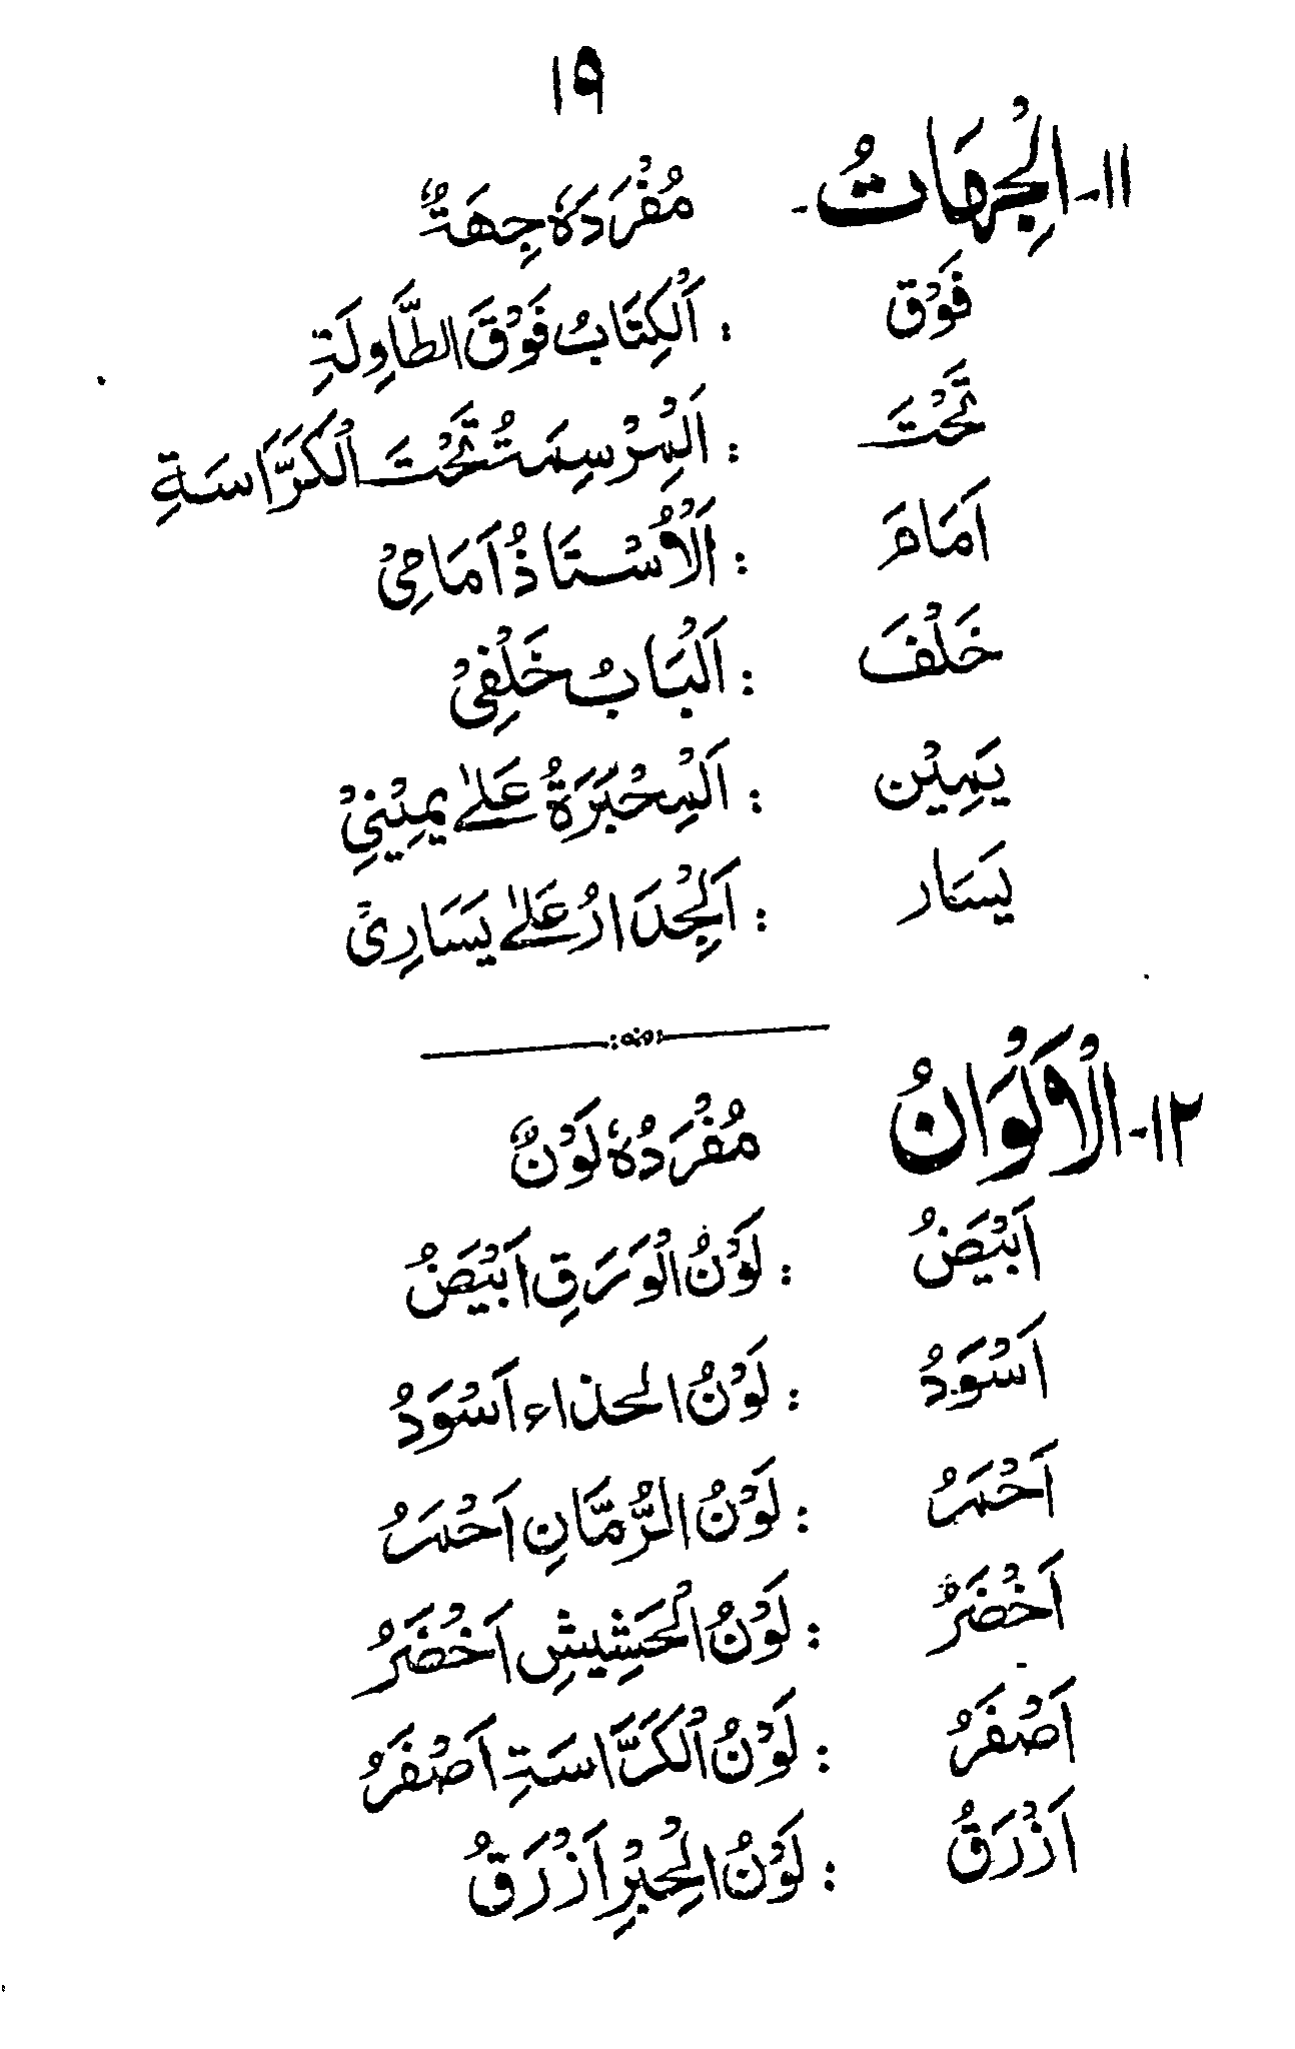 ١٩
١١- اَلْجِهَاتُ - مُفْرَدَهٗ جِهَةٌ
فَوْق : اَلْكِتَابُ فَوْقَ الطَّاوِلَةِ
تَحْتَ : اَلْمِرْسِمَتُ تَحْتَ الْكَرَّاسَةِ
اَمَامَ : اَلْاُسْتَاذُ اَمَامِیْ
خَلْفَ : اَلْبَابُ خَلْفِیْ
يَمِيْن : اَلْمِحْبَرَةُ عَلٰے يَمِيْنِیْ
يَسَار : اَلْجِدَارُ عَلٰے يَسَارِیْ
١٢- اَلْاَلْوَانُ مُفْرَدُهٗ لَوْنٌ
اَبْيَضُ : لَوْنُ الْوَرَقِ اَبْيَضُ
اَسْوَدُ : لَوْنُ الحذاء اَسْوَدُ
اَحْمَرُ : لَوْنُ الرُّمَّانِ اَحْمَرُ
اَخْضَرُ : لَوْنُ الْحَشِيْشِ اَخْضَرُ
اَصْفَرُ : لَوْنُ الْكَرَّاسَةِ اَصْفَرُ
اَزْرَقُ : لَوْنُ الْحِبْرِ اَزْرَقُ